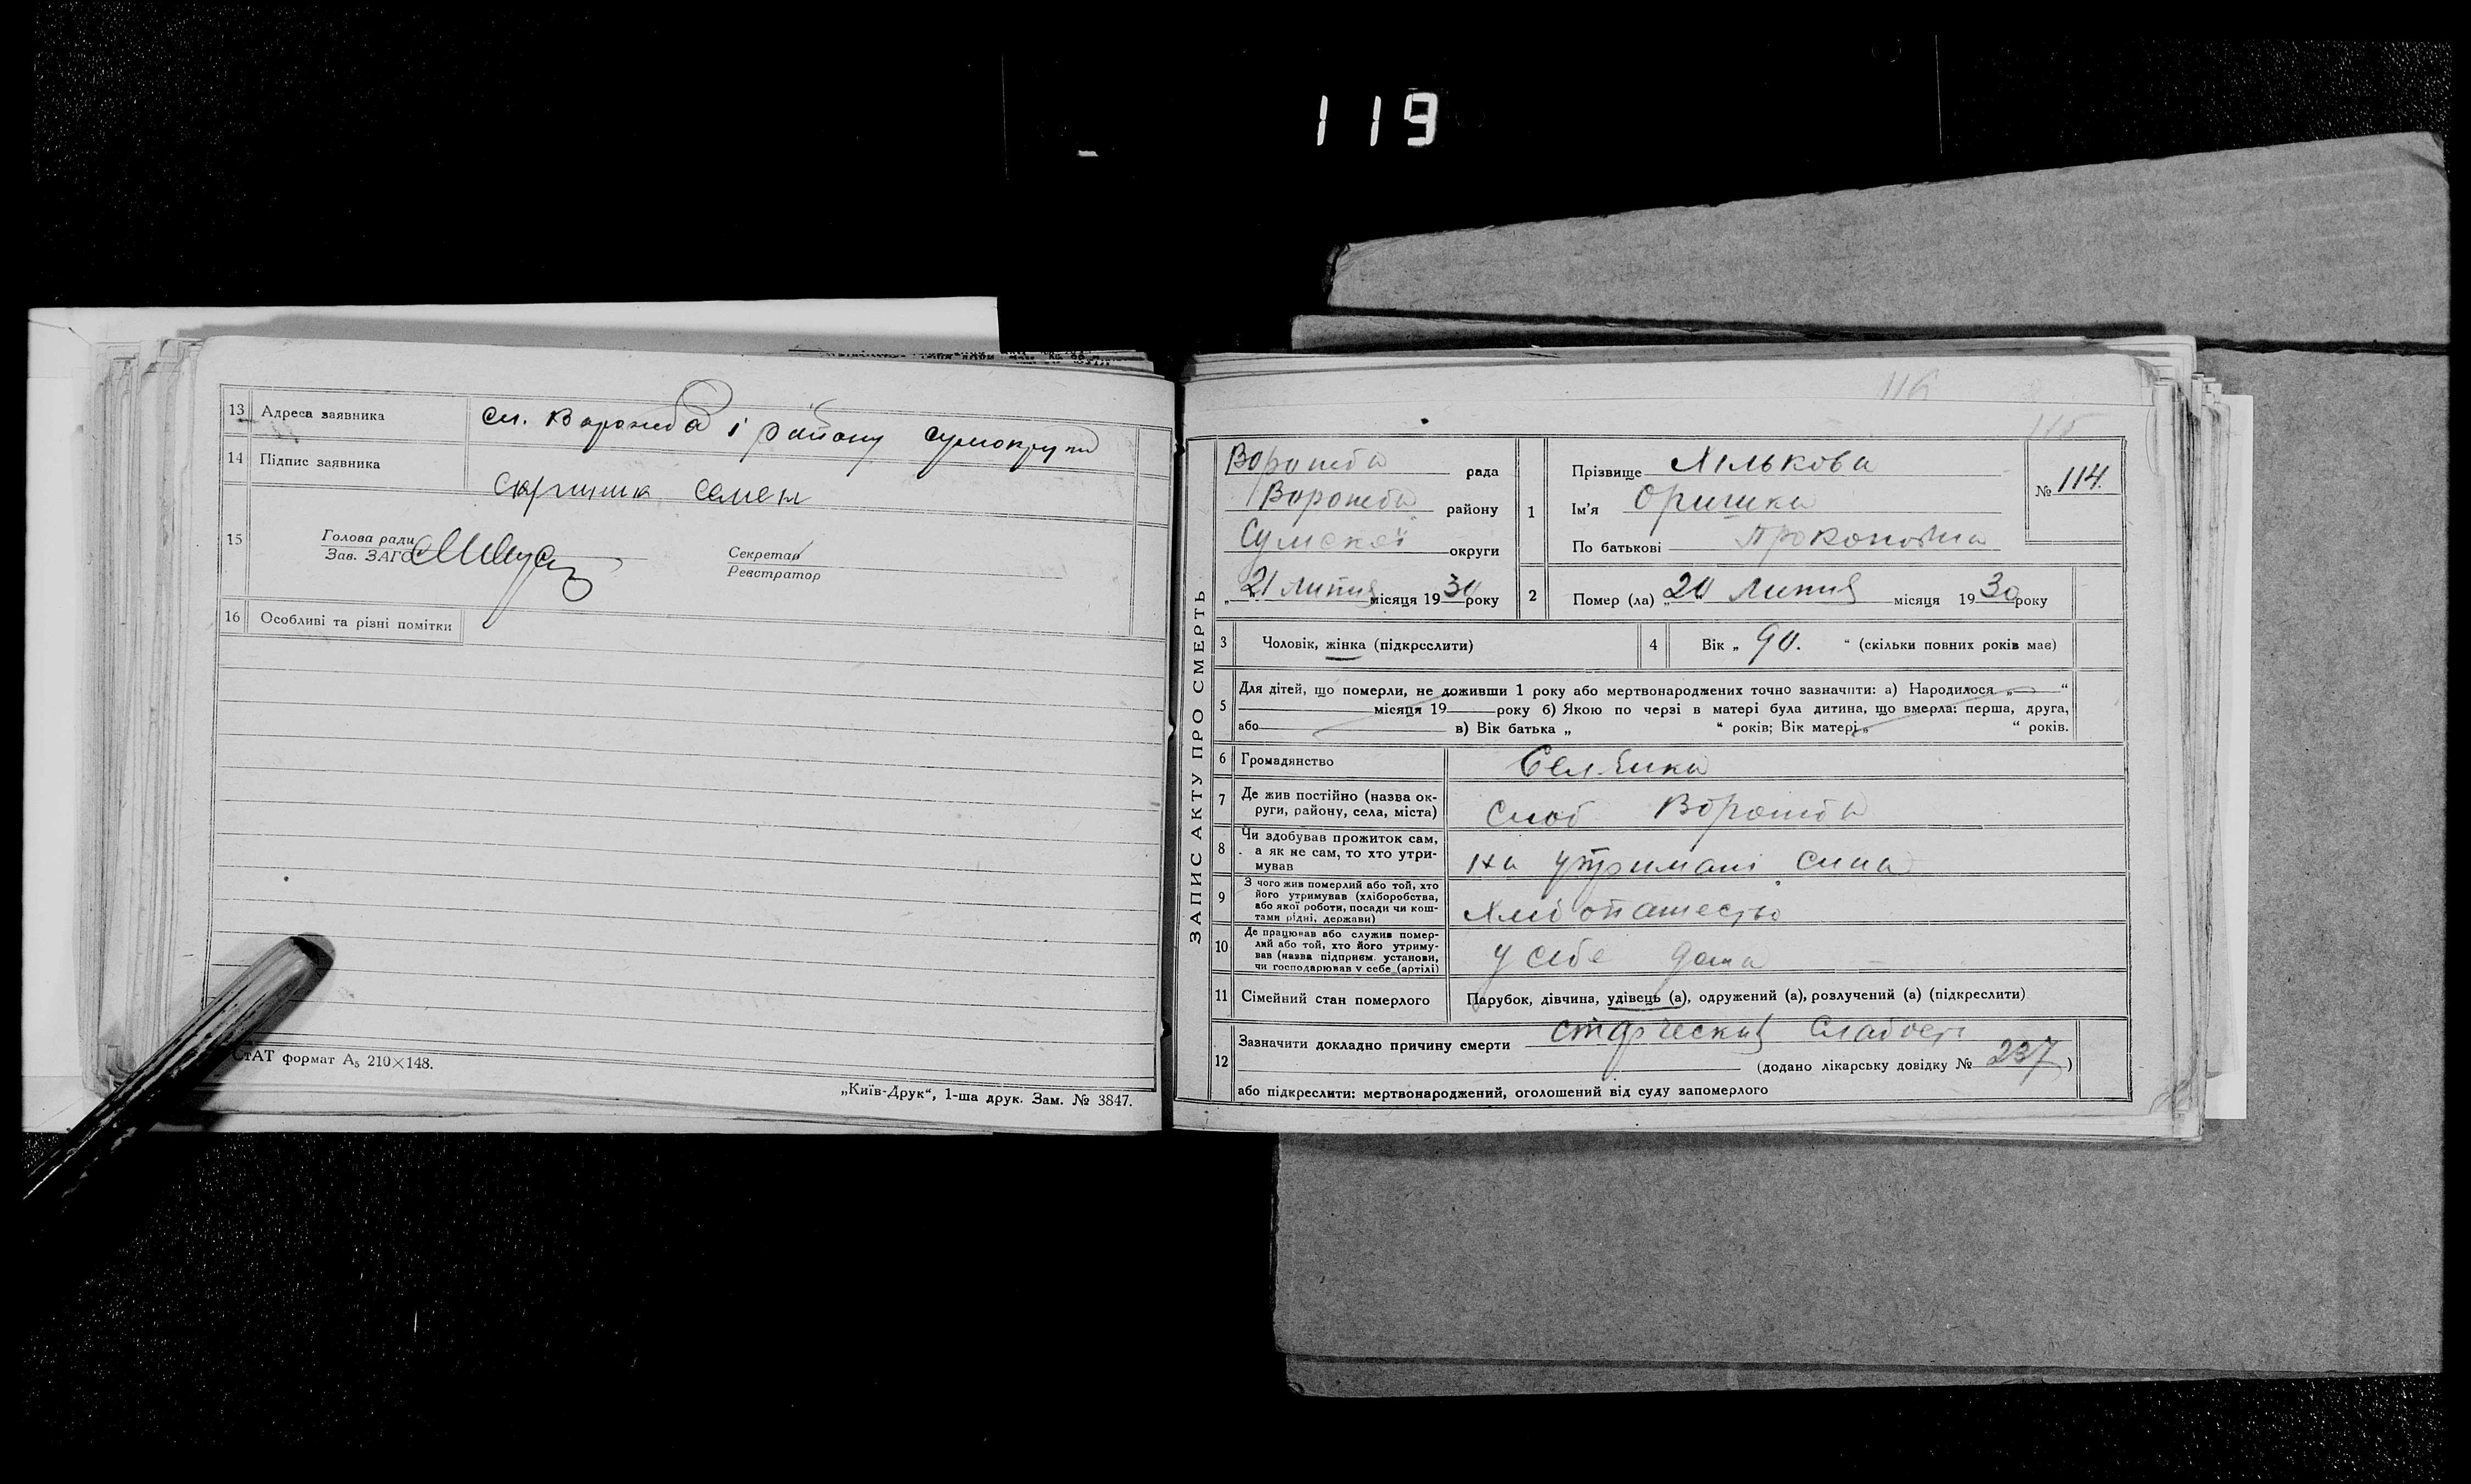 119
13 Адреса заявника сл. Ворожба і району Сумокруги
14 Підпис заявника Скрипник Семен
15 Голова ради
Зав. ЗАГС
Секретар
Реєстратор
16 Особливі та різні помітки
СтАТ формат А₅ 210×148.
„Київ-Друк“, 1-ша друк. Зам. № 3847.
116
115
ЗАПИС АКТУ ПРО СМЕРТЬ
Ворожба рада
Ворожба району
Сумскої округи
„21 Липня місяця 1930 року
1 Прізвище Хількова
Ім'я Оришка
По батькові Прокоповна
№ 114.
2 Помер (ла) „20 Липня місяця 1930 року
3 Чоловік, жінка (підкреслити)
4 Вік „ 90. “ (скільки повних років має)
5 Для дітей, що померли, не доживши 1 року або мертвонароджених точно зазначити: а) Народилося „ “
місяця 19 року б) Якою по черзі в матері була дитина, що вмерла: перша, друга,
або в) Вік батька „ “ років; Вік матері „ “ років.
6 Громадянство Селянка
7 Де жив постійно (назва ок-
руги, району, села, міста) Слоб Ворожба
8 Чи здобував прожиток сам,
а як не сам, то хто утри-
мував на утримані сина
9 З чого жив померлий або той, хто
його утримував (хліборобства,
або якої роботи, посади чи кош-
тами рідні, держави)
10 Де працював або служив помер-
лий або той, хто його утриму-
вав (назва підприєм. установи,
чи господарював у себе (артілі) у себе дома
11 Сімейний стан померлого Парубок, дівчина, удівець (а), одружений (а), розлучений (а) (підкреслити)
12 Зазначити докладно причину смерти старческия слабость
(додано лікарську довідку № 237)
або підкреслити: мертвонароджений, оголошений від суду запомерлого